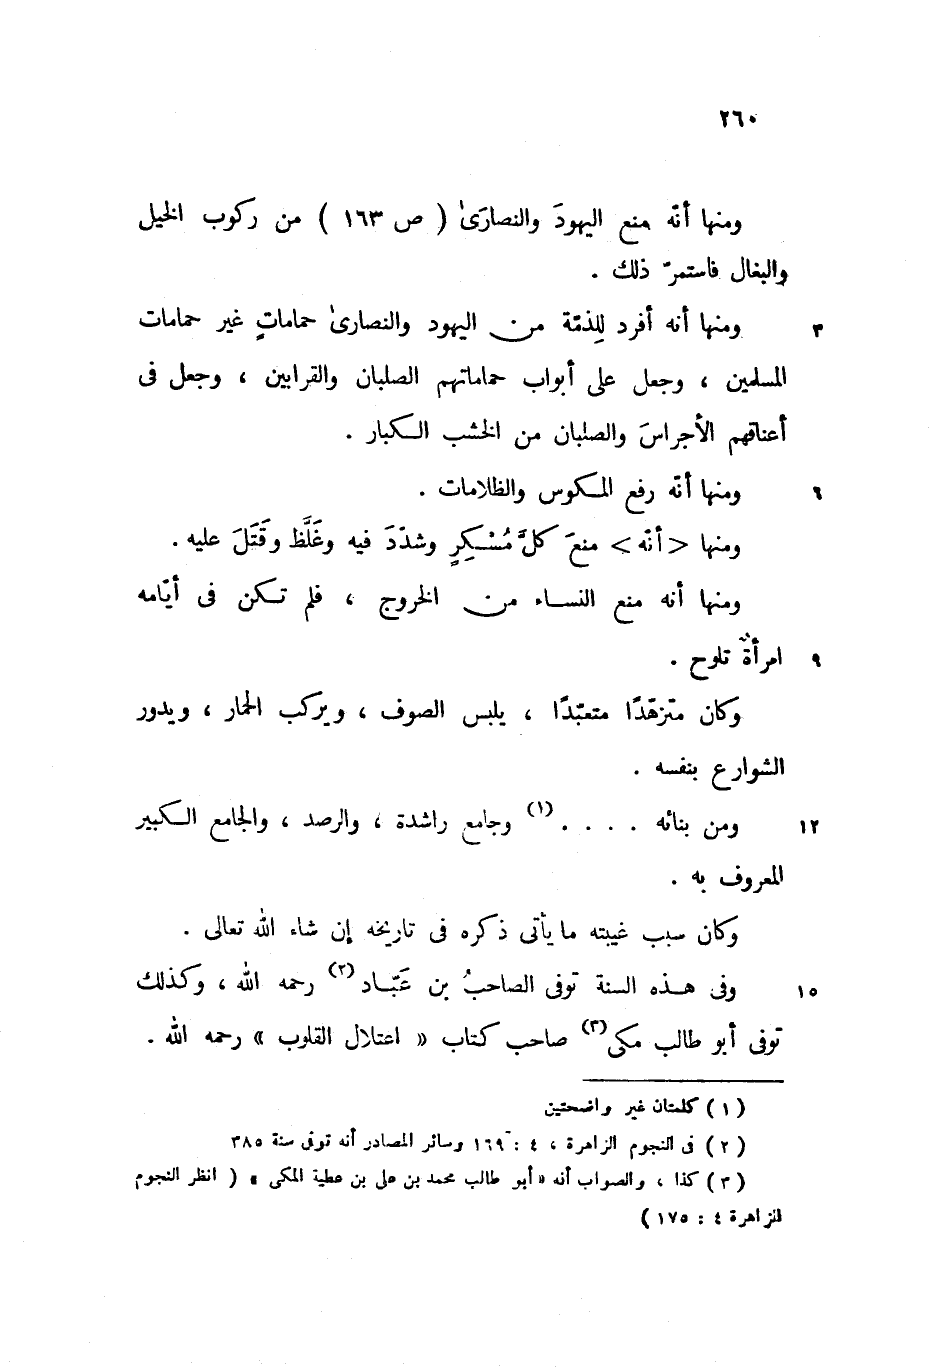 ٢٦٠
ومنها أنّه منع اليهودَ والنصارَىٰ ( ص ١٦٣ ) من ركوب الخيل
والبغال فاستمرّ ذلك .
٣ ومنها أنه أفرد لِلذمّة من اليهود والنصارىٰ حماماتٍ غير حمامات
المسلمين ، وجعل على أبواب حماماتهم الصلبان والقرابين ، وجعل فى
أعناقهم الأجراسَ والصلبان من الخشب الكبار .
٦ ومنها أنّه رفع المكوس والظلامات .
ومنها <أنّه> منعَ كلَّ مُسْكِرٍ وشدّدَ فيه وغَلَّظ وقَتَلَ عليه .
ومنها أنه منع النساء من الخروج ، فلم تكن فى أيّامه
٩ امرأةٌ تلوح .
وكان متزهّدًا متعبّدًا ، يلبس الصوف ، ويركب الحمار ، ويدور
الشوارع بنفسه .
١٢ ومن بنائه . . . . (١) وجامع راشدة ، والرصد ، والجامع الكبير
المعروف به .
وكان سبب غيبته ما يأتى ذكره فى تاريخه إن شاء الله تعالى .
١٥ وفى هذه السنة توفى الصاحبُ بن عَبّاد (٢) رحمه الله ، وكذلك
توفى أبو طالب مكى (٣) صاحب كتاب « اعتلال القلوب » رحمه الله .
( ١ ) كلمتان غير واضحتين
( ٢ ) فى النجوم الزاهرة ، ٤ : ١٦٩ وسائر المصادر أنه توفى سنة ٣٨٥
( ٣ ) كذا ، والصواب أنه « أبو طالب محمد بن على بن عطية المكى » ( انظر النجوم
الزاهرة ٤ : ١٧٥ )